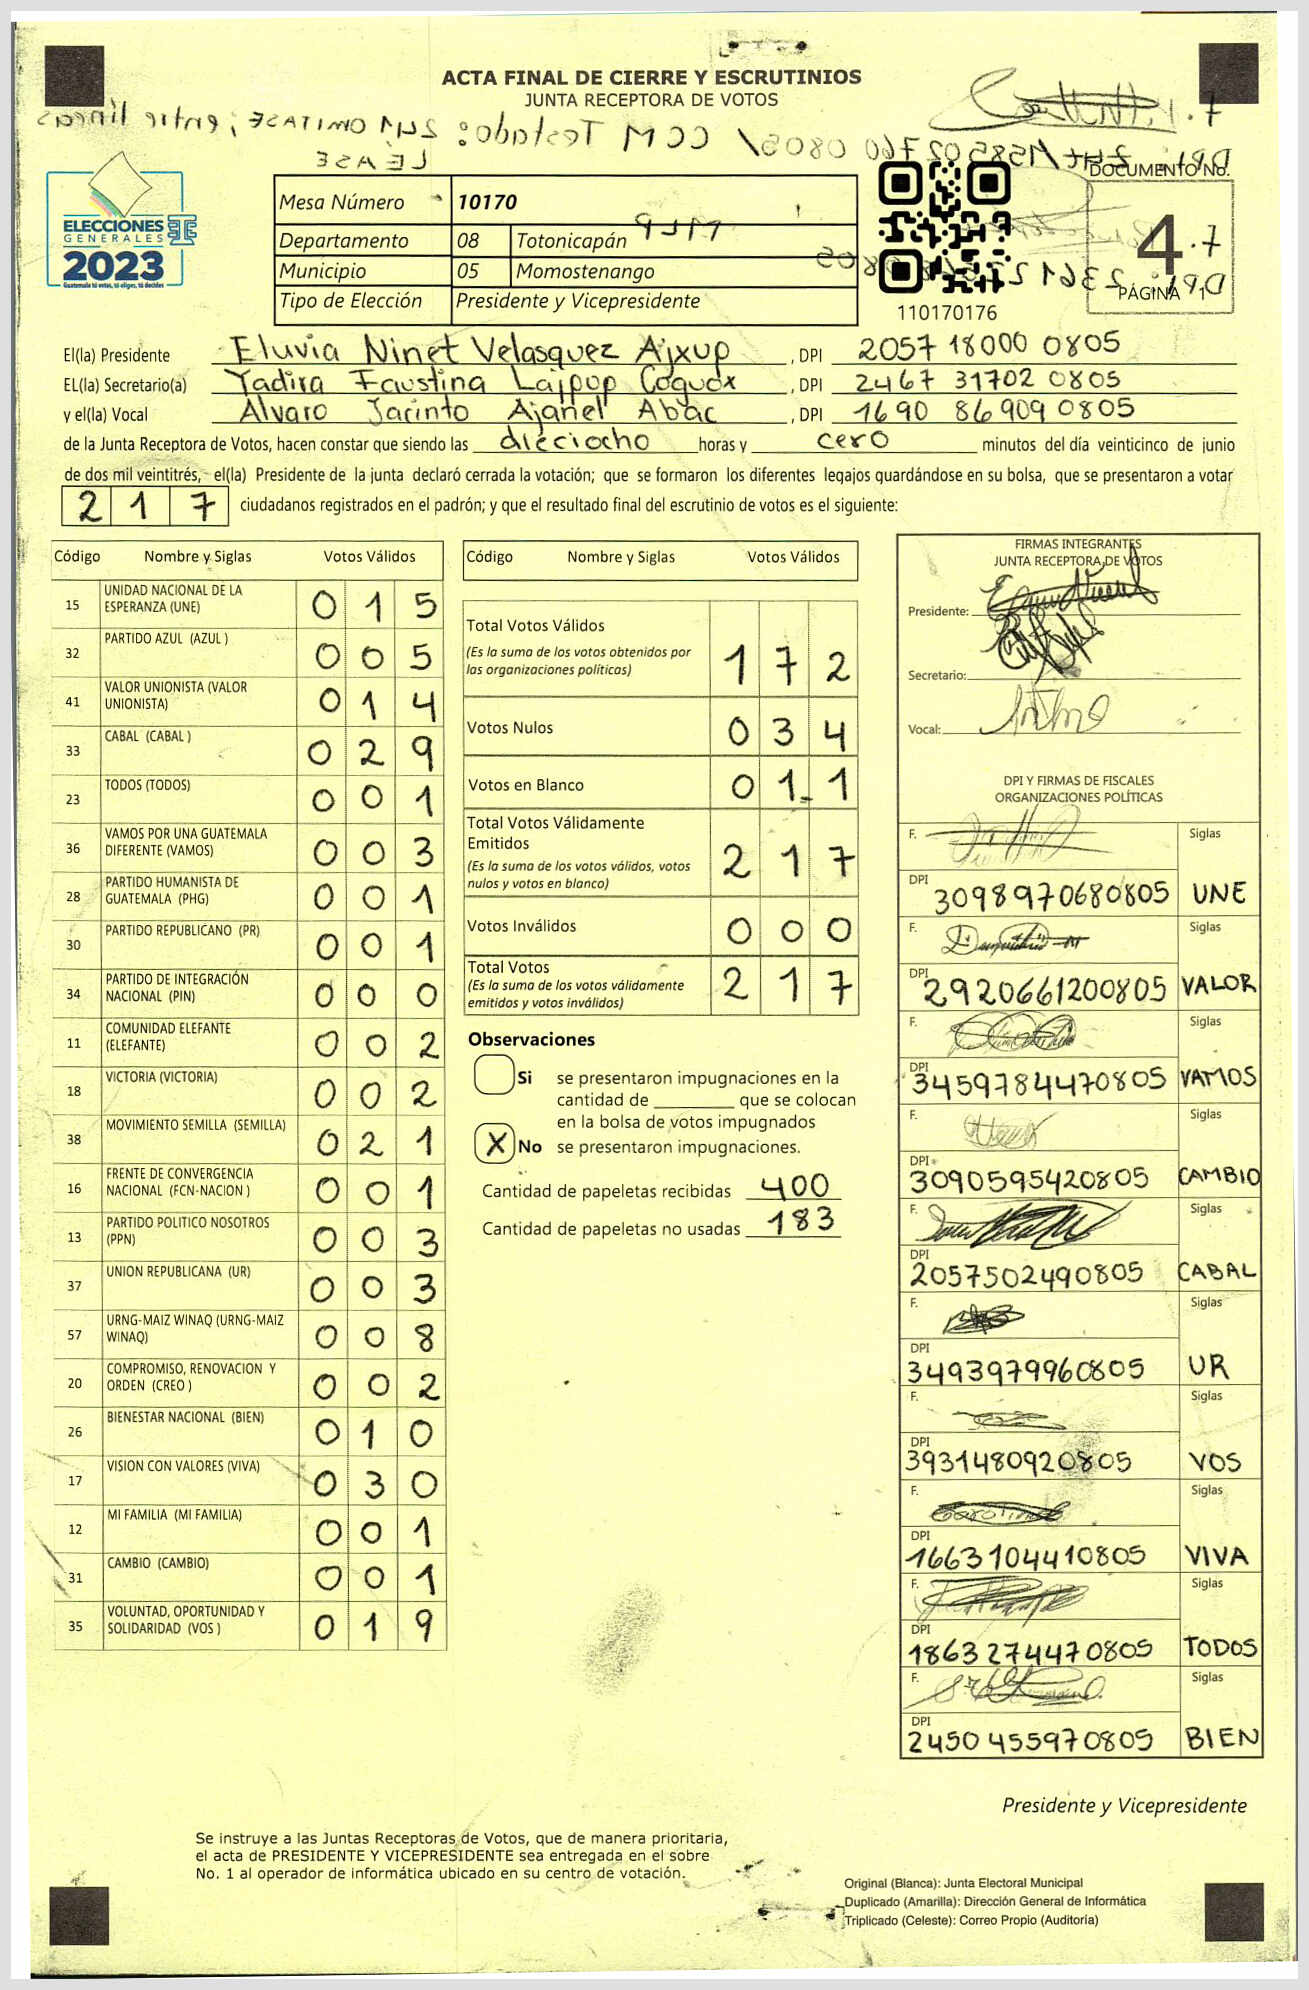 ACTA FINAL DE CIERRE Y ESCRUTINIOS
JUNTA RECEPTORA DE VOTOS
CCM Testado: 241 OMITASE; entre líneas
LÉASE
MLP
DOCUMENTO No.
4
PÁGINA 1
ELECCIONES
GENERALES
2023
Guatemala tú votas, tú eliges, tú decides
Mesa Número 10170
Departamento 08 Totonicapán
Municipio 05 Momostenango
Tipo de Elección Presidente y Vicepresidente
110170176
El(la) Presidente Eluvia Ninet Velasquez Ajxup, DPI 2057 18000 0805
EL(la) Secretario(a) Yadira Faustina Lajpop Coguox, DPI 2467 31702 0805
y el(la) Vocal Alvaro Jacinto Ajanel Abac, DPI 1690 86909 0805
de la Junta Receptora de Votos, hacen constar que siendo las dieciocho horas y cero minutos del día veinticinco de junio
de dos mil veintitrés, el(la) Presidente de la junta declaró cerrada la votación; que se formaron los diferentes legajos guardándose en su bolsa, que se presentaron a votar
217 ciudadanos registrados en el padrón; y que el resultado final del escrutinio de votos es el siguiente:
Código Nombre y Siglas Votos Válidos
15 UNIDAD NACIONAL DE LA ESPERANZA (UNE) 015
32 PARTIDO AZUL (AZUL ) 005
41 VALOR UNIONISTA (VALOR UNIONISTA) 014
33 CABAL (CABAL ) 029
23 TODOS (TODOS) 001
36 VAMOS POR UNA GUATEMALA DIFERENTE (VAMOS) 003
28 PARTIDO HUMANISTA DE GUATEMALA (PHG) 001
30 PARTIDO REPUBLICANO (PR) 001
34 PARTIDO DE INTEGRACIÓN NACIONAL (PIN) 000
11 COMUNIDAD ELEFANTE (ELEFANTE) 002
18 VICTORIA (VICTORIA) 002
38 MOVIMIENTO SEMILLA (SEMILLA) 021
16 FRENTE DE CONVERGENCIA NACIONAL (FCN-NACION ) 001
13 PARTIDO POLITICO NOSOTROS (PPN) 003
37 UNION REPUBLICANA (UR) 003
57 URNG-MAIZ WINAQ (URNG-MAIZ WINAQ) 008
20 COMPROMISO, RENOVACION Y ORDEN (CREO ) 002
26 BIENESTAR NACIONAL (BIEN) 010
17 VISION CON VALORES (VIVA) 030
12 MI FAMILIA (MI FAMILIA) 001
31 CAMBIO (CAMBIO) 001
35 VOLUNTAD, OPORTUNIDAD Y SOLIDARIDAD (VOS ) 019
Código Nombre y Siglas Votos Válidos
Total Votos Válidos 172
(Es la suma de los votos obtenidos por
las organizaciones políticas)
Votos Nulos 034
Votos en Blanco 011
Total Votos Válidamente
Emitidos 217
(Es la suma de los votos válidos, votos
nulos y votos en blanco)
Votos Inválidos 000
Total Votos 217
(Es la suma de los votos válidamente
emitidos y votos inválidos)
Observaciones
Si se presentaron impugnaciones en la
cantidad de ________ que se colocan
en la bolsa de votos impugnados
X No se presentaron impugnaciones.
Cantidad de papeletas recibidas 400
Cantidad de papeletas no usadas 183
FIRMAS INTEGRANTES
JUNTA RECEPTORA DE VOTOS
Presidente:
Secretario:
Vocal:
DPI Y FIRMAS DE FISCALES
ORGANIZACIONES POLÍTICAS
F. Siglas
DPI 3098970680805 UNE
F. Siglas
DPI 2920661200805 VALOR
F. Siglas
DPI 3459784470805 VAMOS
F. Siglas
DPI 3090595420805 CAMBIO
F. Siglas
DPI 2057502490805 CABAL
F. Siglas
DPI 3493979960805 UR
F. Siglas
DPI 3931480920805 VOS
F. Siglas
DPI 1663104410805 VIVA
F. Siglas
DPI 1863274470805 TODOS
F. Siglas
DPI 2450455970805 BIEN
Presidente y Vicepresidente
Se instruye a las Juntas Receptoras de Votos, que de manera prioritaria,
el acta de PRESIDENTE Y VICEPRESIDENTE sea entregada en el sobre
No. 1 al operador de informática ubicado en su centro de votación.
Original (Blanca): Junta Electoral Municipal
Duplicado (Amarilla): Dirección General de Informática
Triplicado (Celeste): Correo Propio (Auditoría)